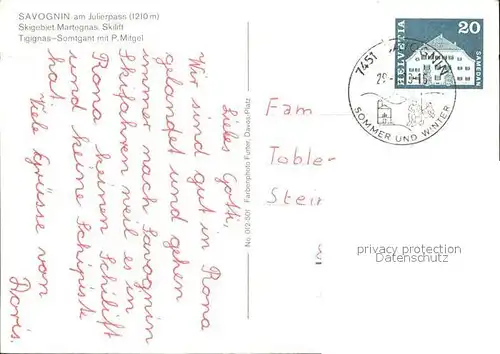 SAVOGNIN am Julierpass (1210 m)
Skigebiet Martegnas. Skilift
Tigignas–Somtgant mit P. Mitgel
Liebes Gotti,
Wir sind gut in Rona
glandet und gehen
immer nach Savognin
Skifahren weil es in
Rona keinen Schilift
und keine Schipiste
hat.
Viele Grüsse von
Doris.
No. 012-501 Farbenphoto Furter, Davos-Platz
HELVETIA
20
SAMEDAN
7451
SOMMER UND WINTER
Fam
Tobler
Stein
privacy protection
Datenschutz